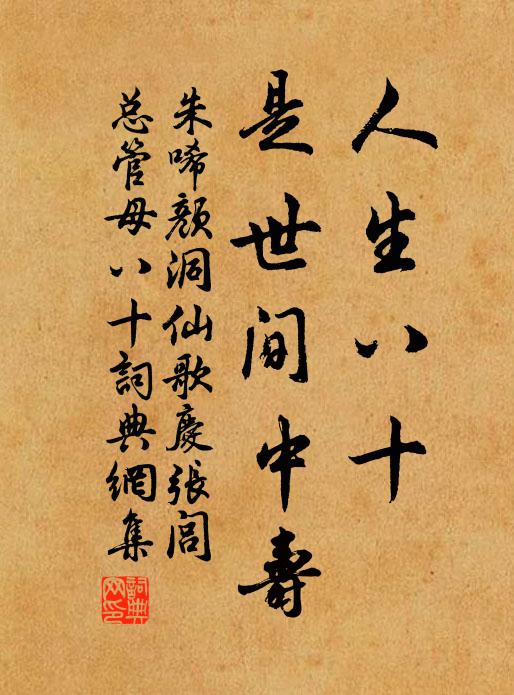 人生八十
是世间中壽
朱唏颜洞仙歌慶張闾
总管母八十詞典網集
詞典
网印